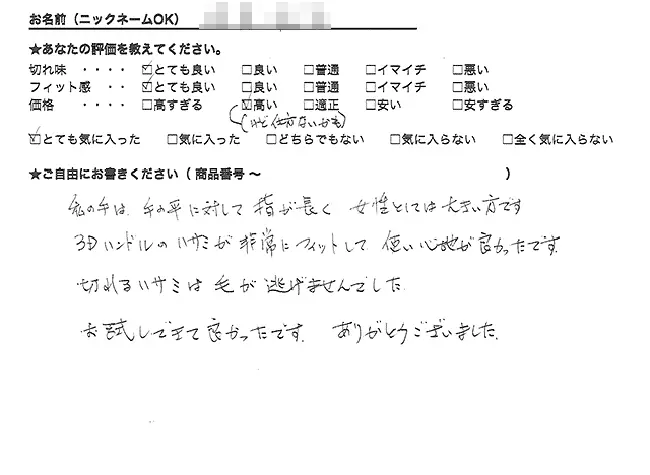 お名前（ニックネームOK）
★あなたの評価を教えてください。
切れ味 ・・・・ ☑とても良い □良い □普通 □イマイチ □悪い
フィット感 ・・ ☑とても良い □良い □普通 □イマイチ □悪い
価格 ・・・・ □高すぎる ☑高い □適正 □安い □安すぎる
（けど仕方ないかも）
☑とても気に入った □気に入った □どちらでもない □気に入らない □全く気に入らない
★ご自由にお書きください（ 商品番号 ～ ）
私の手は、手の平に対して 指が長く 女性としては大きい方です
3Dハンドルのハサミが 非常にフィットして 使い心地が良かったです.
切れるハサミは 毛が 逃げませんでした.
お試しできて良かったです. ありがとうございました.